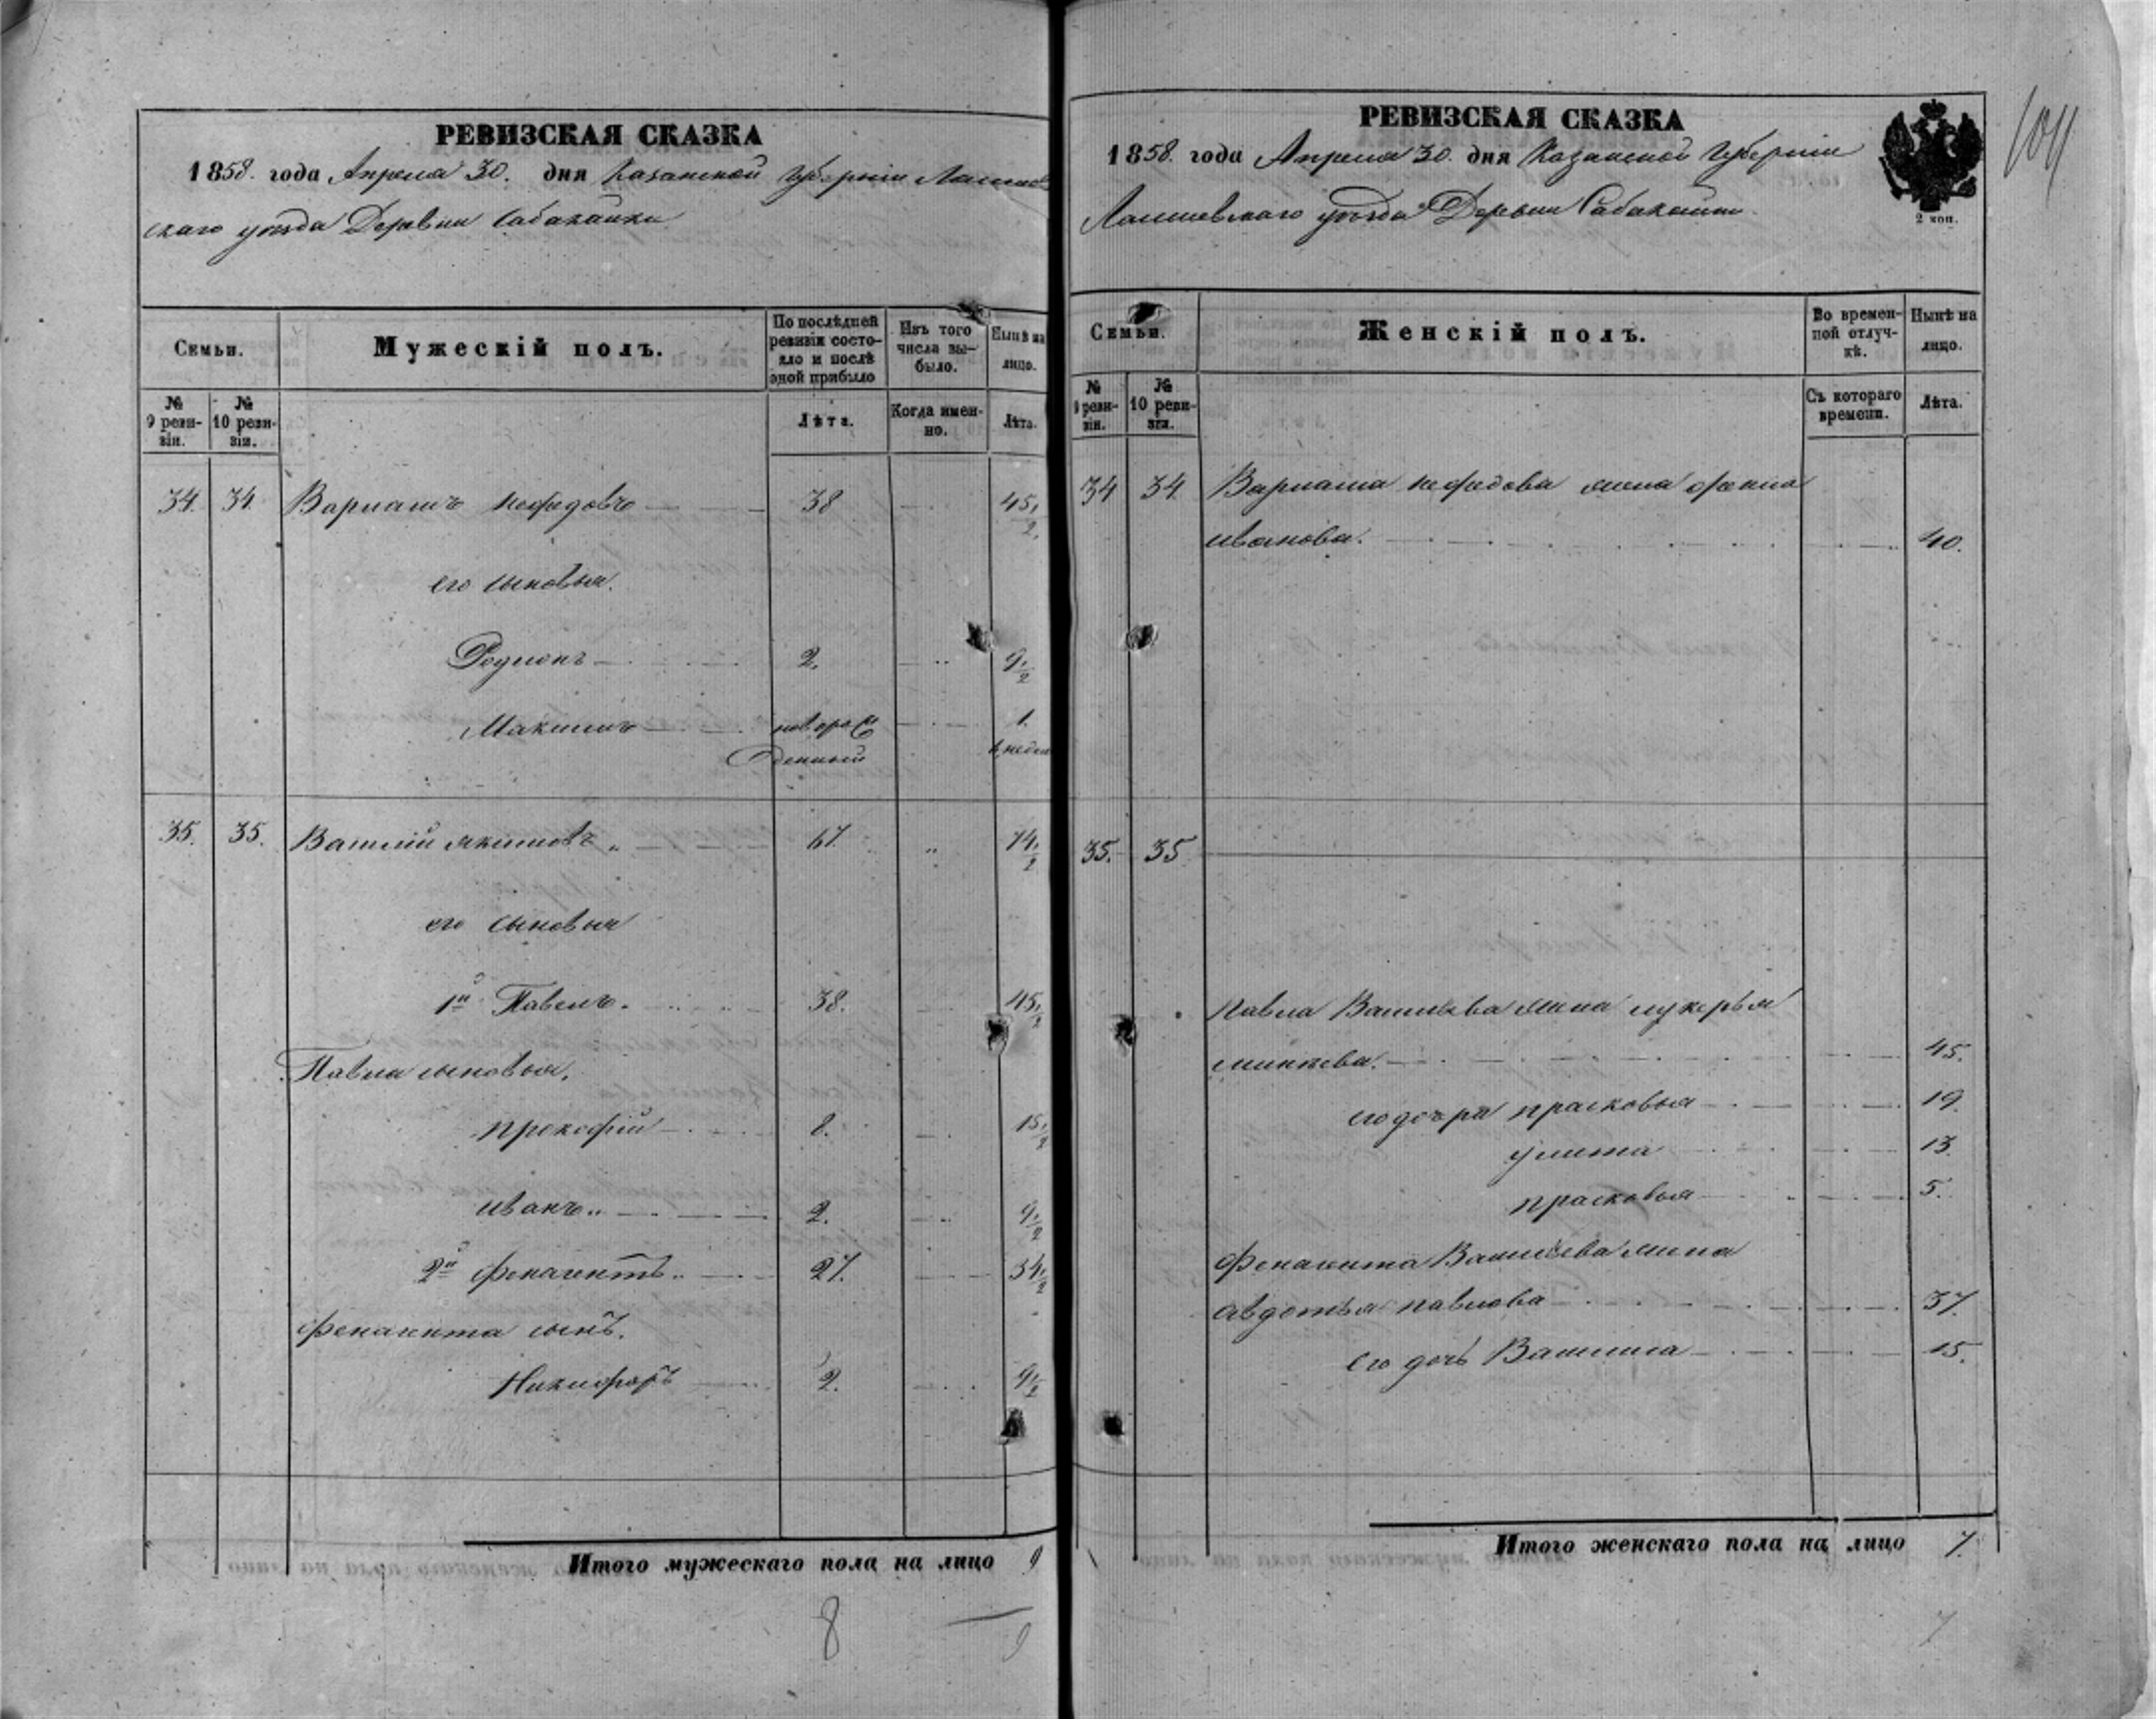 РЕВИЗСКАЯ СКАЗКА
1858. года Апреля 30. дня Казанской Губерніи Лаишев
скаго уѣзда Деревни Сабакайки
Семьи.
Мужескій полъ.
По послѣдней ревизіи состояло и послѣ оной прибыло
Изъ того числа вы-было.
Нынѣ на лицо.
№ 9 реви-зіи.
№ 10 реви-зіи.
Лѣта.
Когда имен-но.
Лѣта.
34. 34. Варламъ нефедовъ 38 45 1/2
его сыновья.
Родионъ 2. 9 1/2
Макимъ новорож 1.
денный недел
35. 35. Василий якимовъ 67. 74 1/2
его сыновья
1й Павелъ. 38. 45 1/2
Павла сыновья.
прокофий 8. 15 1/2
иванъ 2. 9 1/2
2й фенагентъ 27. 34 1/2
фенагента сынъ.
Никифоръ 2. 9 1/2
Итого мужескаго пола на лицо 9
8
9
РЕВИЗСКАЯ СКАЗКА
1858. года Апреля 30. дня Казанской Губерніи
Лаишевскаго уѣзда Деревни Сабакайки
2 коп.
104
Семьи.
Женскій полъ.
Во времен-ной отлуч-кѣ.
Нынѣ на лицо.
№ 9 реви-зіи.
№ 10 реви-зіи.
Съ котораго времени.
Лѣта.
34 34. Варлама нефедова жена
иванова. 40.
35. 35
Павла Васильева жена лукерья
минѣева. 45.
его дочери прасковья 19.
улита 13.
прасковья 5.
Фенагента Васильева жена
авдотья павлова 37.
его дочь Василиса 15.
Итого женскаго пола на лицо 7.
7